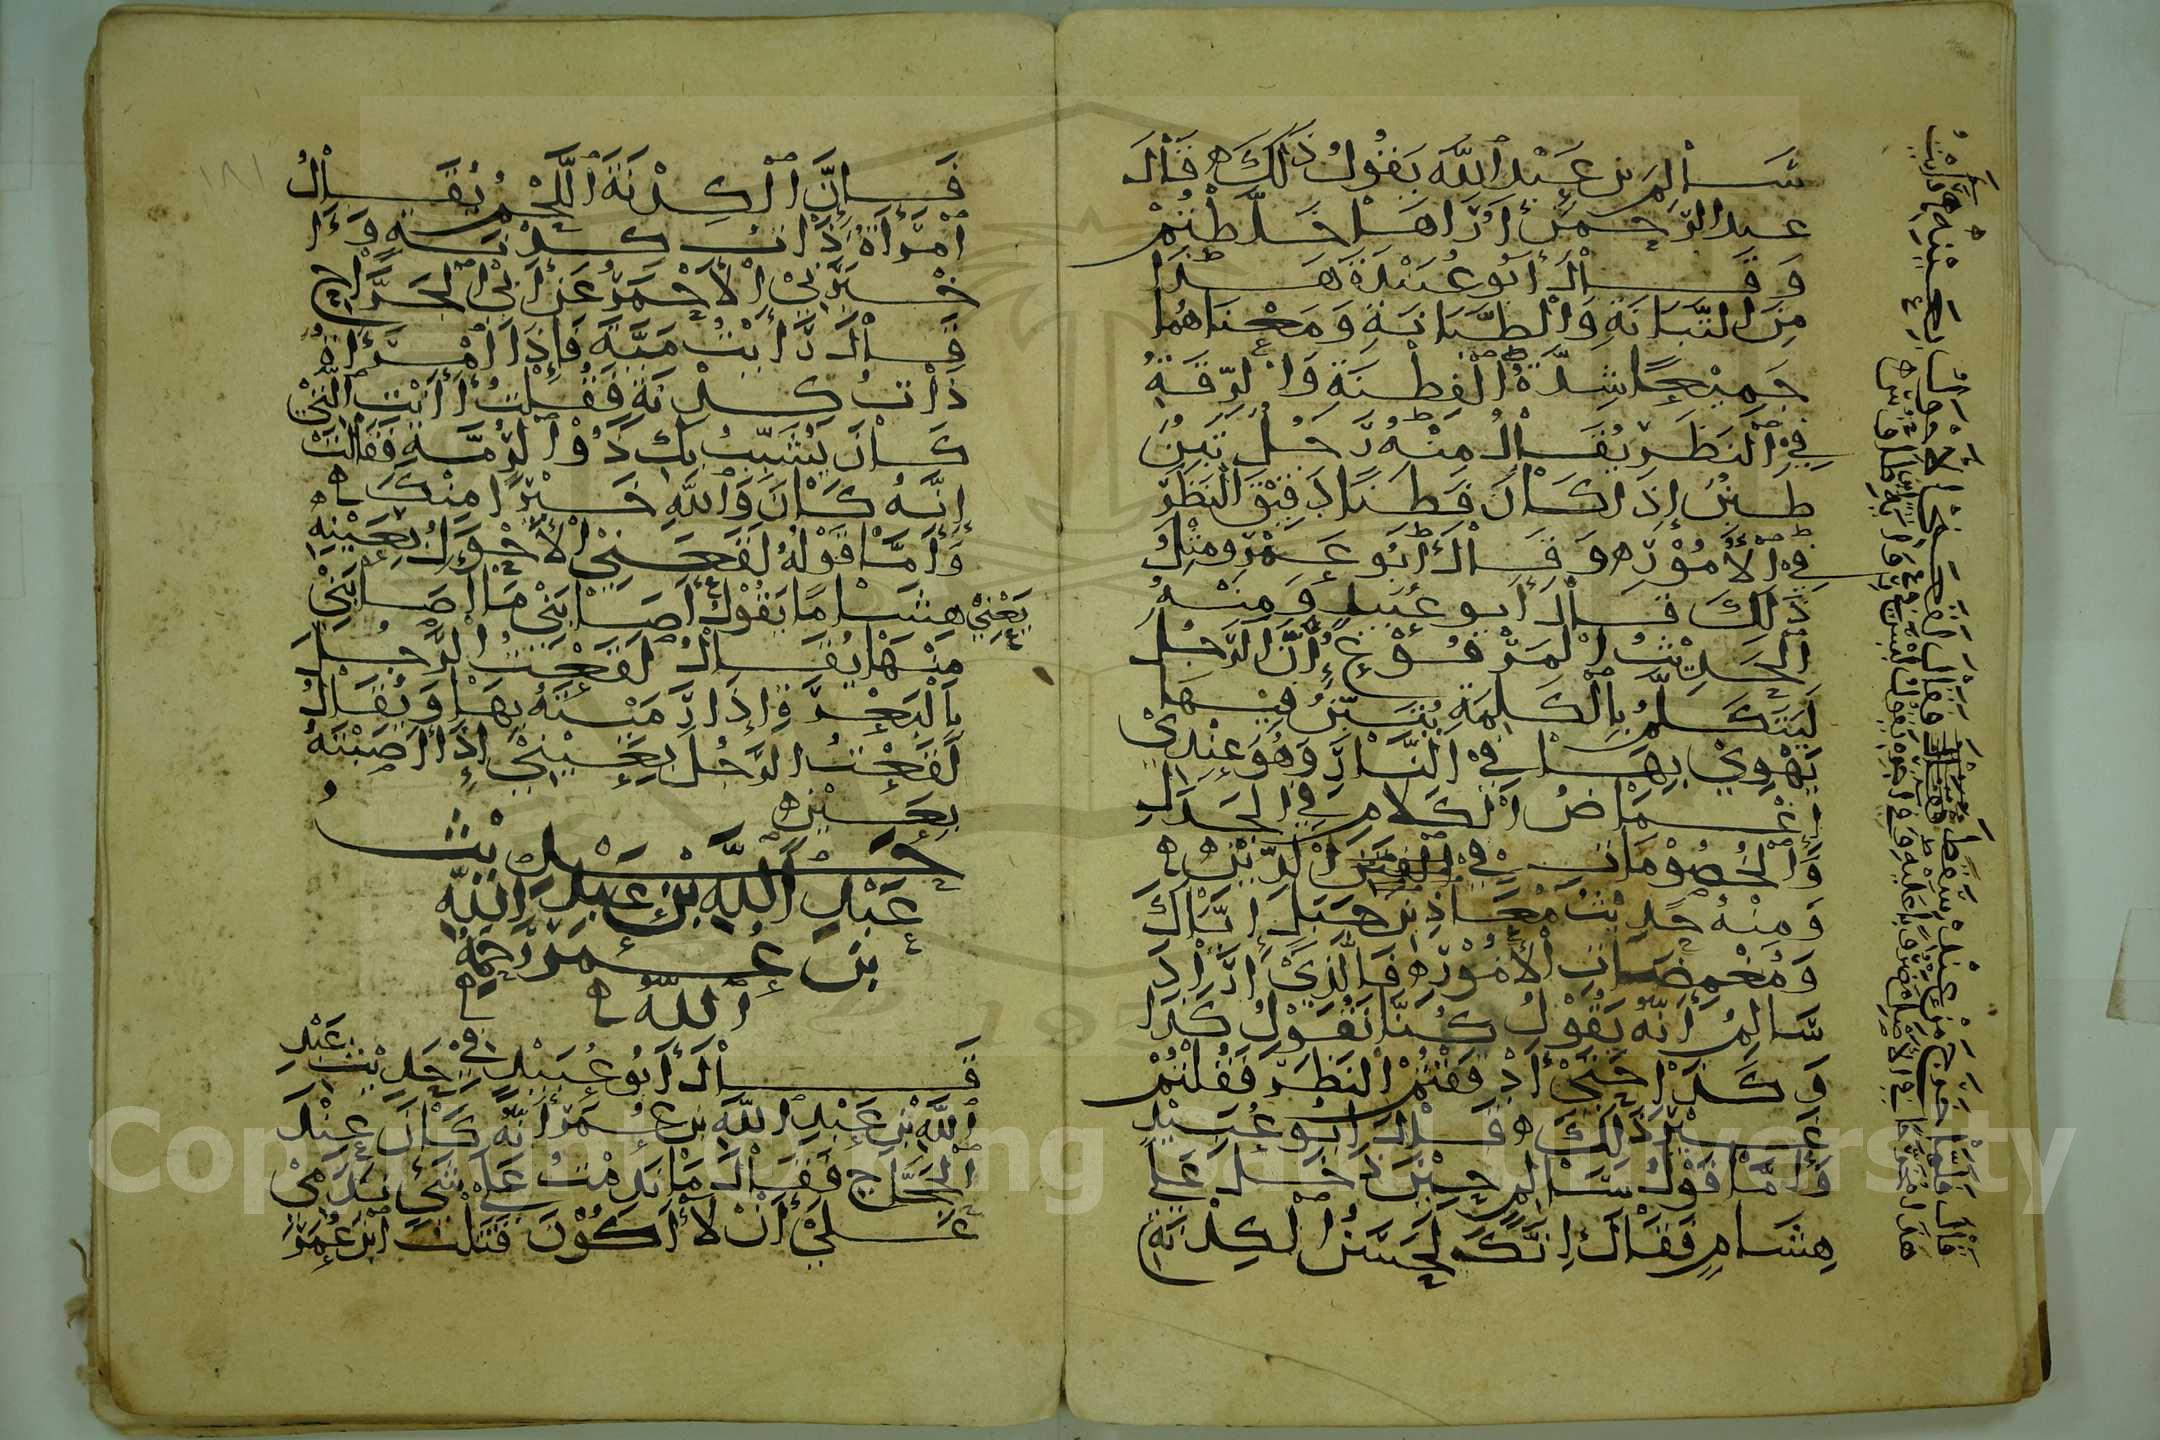 سَالِمَ بن عَبْدِ اللَّهِ يَقُولُ ذَلِكَ ه قَالَ
عبد الرحمن أُرَاهَا خَلَّطْتُمْ
وَقَالَ أَبُو عُبَيْدَةَ هَذَا
مِنَ التَّبَانَةِ وَالطَّبَانَةِ وَمَعْنَاهُمَا
جَمِيْعًا شِدَّةُ الْفِطْنَةِ وَالدِّقَّةُ
فِي النَّظَرِ يُقَالُ مِنْهُ رَجُلٌ تَبِنٌ
طَبِنٌ إِذَا كَانَ فَطِنًا دَقِيْقَ النَّظَرِ
فِي الْأُمُوْرِ ه وَقَالَ أَبُو عَمْرٍو مِثْلُ
ذَلِكَ قَالَ أَبُو عُبَيْدٍ وَمِنْهُ
الْحَدِيْثُ الْمَرْفُوْعُ إِنَّ الرَّجُلَ
لَيَتَكَلَّمُ بِالْكَلِمَةِ يُتَبِّنُ فِيْهَا
يَهْوِيْ بِهَا فِي النَّارِ وَهُوَ عِنْدِيْ
إِغْمَاضُ الْكَلَامِ فِي الْجَدَلِ
وَالْخُصُوْمَاتِ فِي الدِّيْنِ ه
وَمِنْهُ حَدِيْثُ مُعَاذِ بن جَبَلٍ إِيَّاكَ
وَمُغْمِضَاتِ الْأُمُوْرِ ه فَالَّذِيْ أَرَادَ
سَالِمٌ أَنَّهُ يَقُوْلُ كُنَّا نَقُوْلُ كَذَا
وَكَذَا حَتَّى أَدْقَقْتُمُ النَّظَرَ فَقُلْتُمْ
غَيْرَ ذَلِكَ ه قَالَ أَبُو عُبَيْدٍ
وَأَمَّا قَوْلُ سَالِمٍ حِيْنَ دَخَلَ عَلَى
هِشَامٍ فَقَالَ إِنَّكَ لَحَسَنُ الْكِدْنَةِ
فَإِنَّ الْكِدْنَةَ اللَّحْمُ يُقَالُ
امْرَأَةٌ ذَاتُ كِدْنَةٍ وَأَ
خْبَرَنِيْ الْأَحْمَرُ عَنْ أَبِي الْجَرَّاحِ
قَالَ رَأَيْتُ مَيَّةَ فَإِذَا امْرَأَةٌ
ذَاتُ كِدْنَةٍ فَقُلْتُ أَأَنْتِ الَّتِيْ
كَانَ يُشَبِّبُ بِكِ ذُو الرُّمَّةِ فَقَالَتْ
إِنَّهُ كَانَ وَاللَّهِ خَيْرًا مِنْكَ ه
وَأَمَّا قَوْلُهُ لَقَعَنِيْ الْأَحْوَلُ بِعَيْنِهِ
يَعْنِيْ هِشَامًا يَقُوْلُ أَصَابَنِيْ مَا أَصَابَنِيْ
مِنْهَا يُقَالُ لَقَعْتُ الرَّجُلَ
بِالْبَعْرَةِ إِذَا رَمَيْتَهُ بِهَا وَيُقَالُ
لَقَعْتُ الرَّجُلَ بِعَيْنِيْ إِذَا أَصَبْتَهُ
بِعَيْنٍ ه
حَدِيْثُ
عَبْدِ اللَّهِ بْنِ عَبْدِ اللَّهِ
بْنِ عُمَرَ رَحِمَهُ
اللَّهُ ه
قَالَ أَبُو عُبَيْدٍ فِي حَدِيْثِ عَبْدِ
اللَّهِ بْنِ عَبْدِ اللَّهِ بن عُمَرَ أَنَّهُ كَانَ عِنْدَ
الْحَجَّاجِ فَقَالَ مَا نَدِمْتُ عَلَى شَيْءٍ نَدَمِيْ
عَلَى أَنْ لَا أَكُوْنَ قَتَلْتُ ابْنَ عُمَرَ